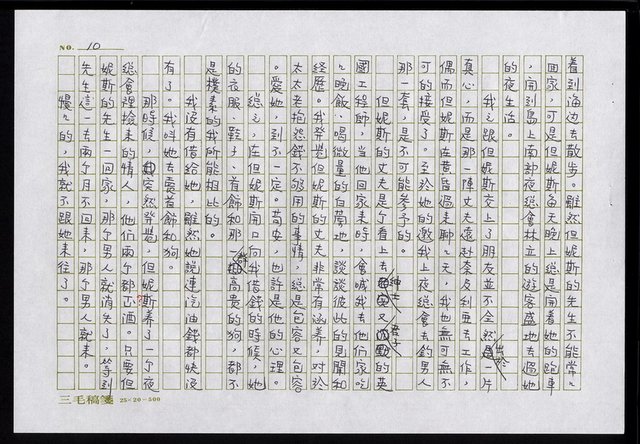 NO. 10
看到海边去散步。雖然但妮斯的先生不能常々
回家,可是但妮斯每天晚上總是開着她的跑車
,開到島上南部夜總會林立的遊客盛地去過她
的夜生活。
我之跟但妮斯交上了朋友並不全然出於一片
真心,而是那一陣丈夫遠赴奈及利亞去工作,
偶而但妮斯在黄昏過來聊々天,我也無可無不
可的接受了。至於她的邀我上夜總會去釣男人
那一套,是不可能奉了的。
但妮斯的丈夫是个看上去紳士君子的英
國工程師,當他回家來時,會喊我去他們家吃
々晚飯、喝微量的白蘭地,談談彼此的見聞和
經歷。我發覺但妮斯的丈夫非常有涵养,对於
太太老抱怨錢不够用的事情,總是包容又包容
。愛她,到不一定。苟安,也許是他的心理。
總之,在但妮斯開口向我借錢的時候,她
的衣服、鞋子、首飾和那一群高貴的狗,都不
是樸素的我所能相比的。
我沒有借給她,雖然她說連汽油錢都快沒
有了。我叫她去賣首飾和狗。
那時候,我突然發覺,但妮斯养了一个夜
總會裡撿來的情人,他們兩个都酗酒。只要但
妮斯的先生一回家,那个男人就消失了,等到
先生這一去兩个月不回來,那个男人就來。
慢々的,我就不跟她來往了。
三毛稿箋 25×20=500